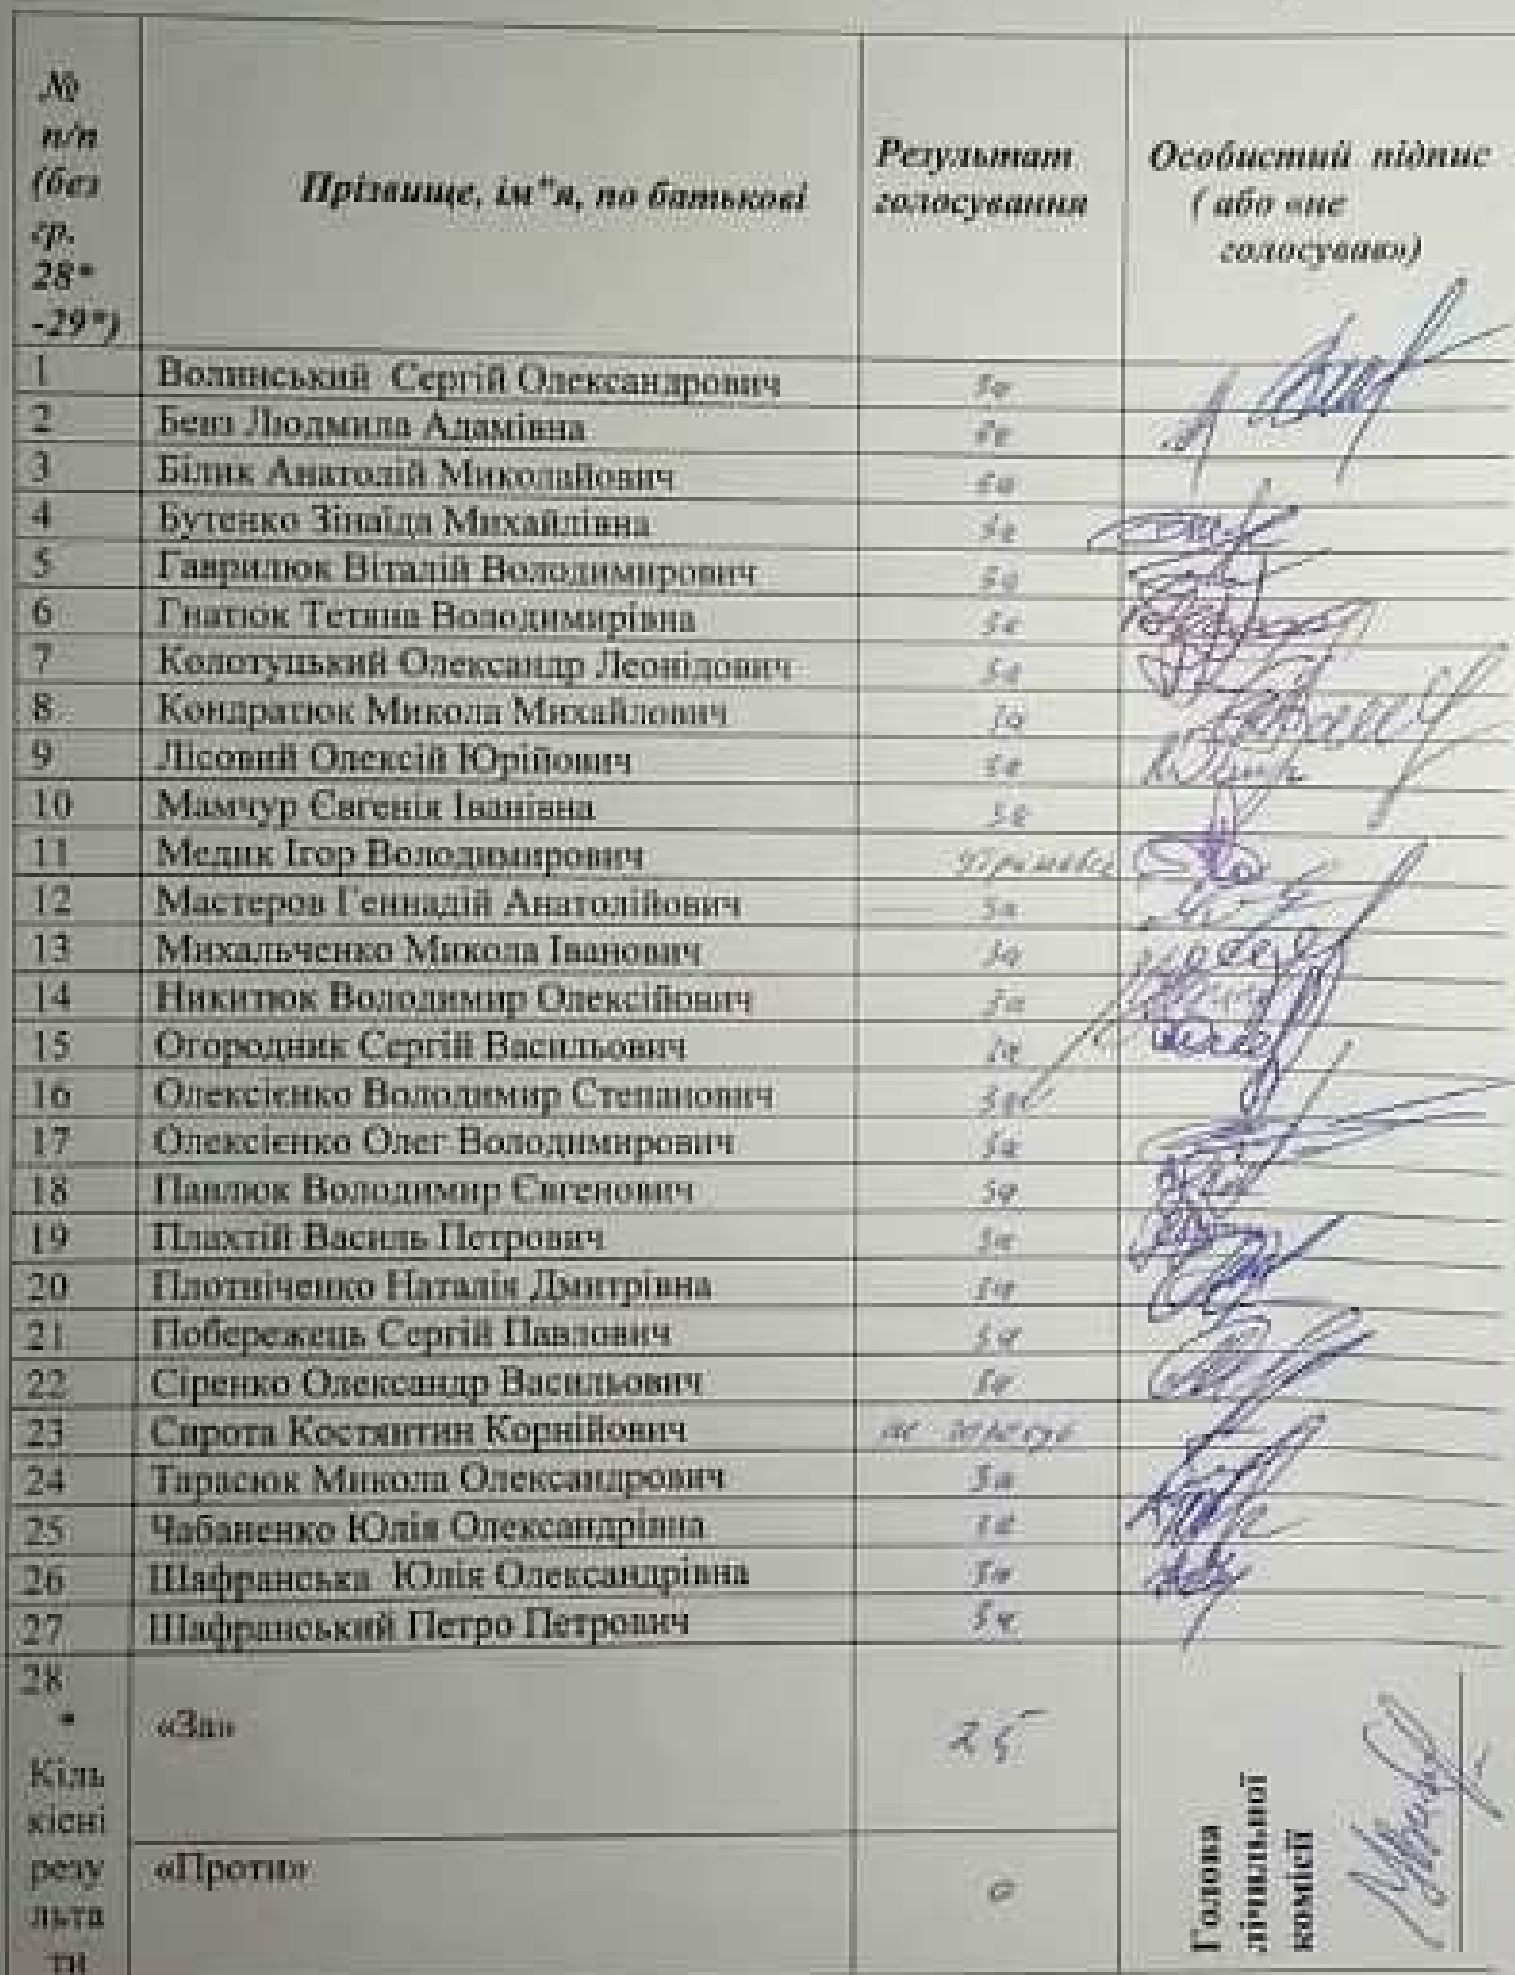 №
п/п
(без
гр.
28*
-29*)
Прізвище, ім"я, по батькові
Результат
голосування
Особистий підпис
( або «не
голосував»)
1 Волинський Сергій Олександрович за
2 Бевз Людмила Адамівна за
3 Білик Анатолій Миколайович за
4 Бутенко Зінаїда Михайлівна за
5 Гаврилюк Віталій Володимирович за
6 Гнатюк Тетяна Володимирівна за
7 Колотуцький Олександр Леонідович за
8 Кондратюк Микола Михайлович за
9 Лісовий Олексій Юрійович за
10 Мамчур Євгенія Іванівна за
11 Медик Ігор Володимирович утримався
12 Мастеров Геннадій Анатолійович за
13 Михальченко Микола Іванович за
14 Никитюк Володимир Олексійович за
15 Огородник Сергій Васильович за
16 Олексієнко Володимир Степанович за
17 Олексієнко Олег Володимирович за
18 Павлюк Володимир Євгенович за
19 Плахтій Василь Петрович за
20 Плотніченко Наталія Дмитрівна за
21 Побережець Сергій Павлович за
22 Сіренко Олександр Васильович за
23 Сирота Костянтин Корнійович не
24 Тарасюк Микола Олександрович за
25 Чабаненко Юлія Олександрівна за
26 Шафранська Юлія Олександрівна за
27 Шафранський Петро Петрович за
28
*
Кіль
кісні
резу
льта
ти
«За» 25
«Проти» 0
Голова
лічильної
комісії